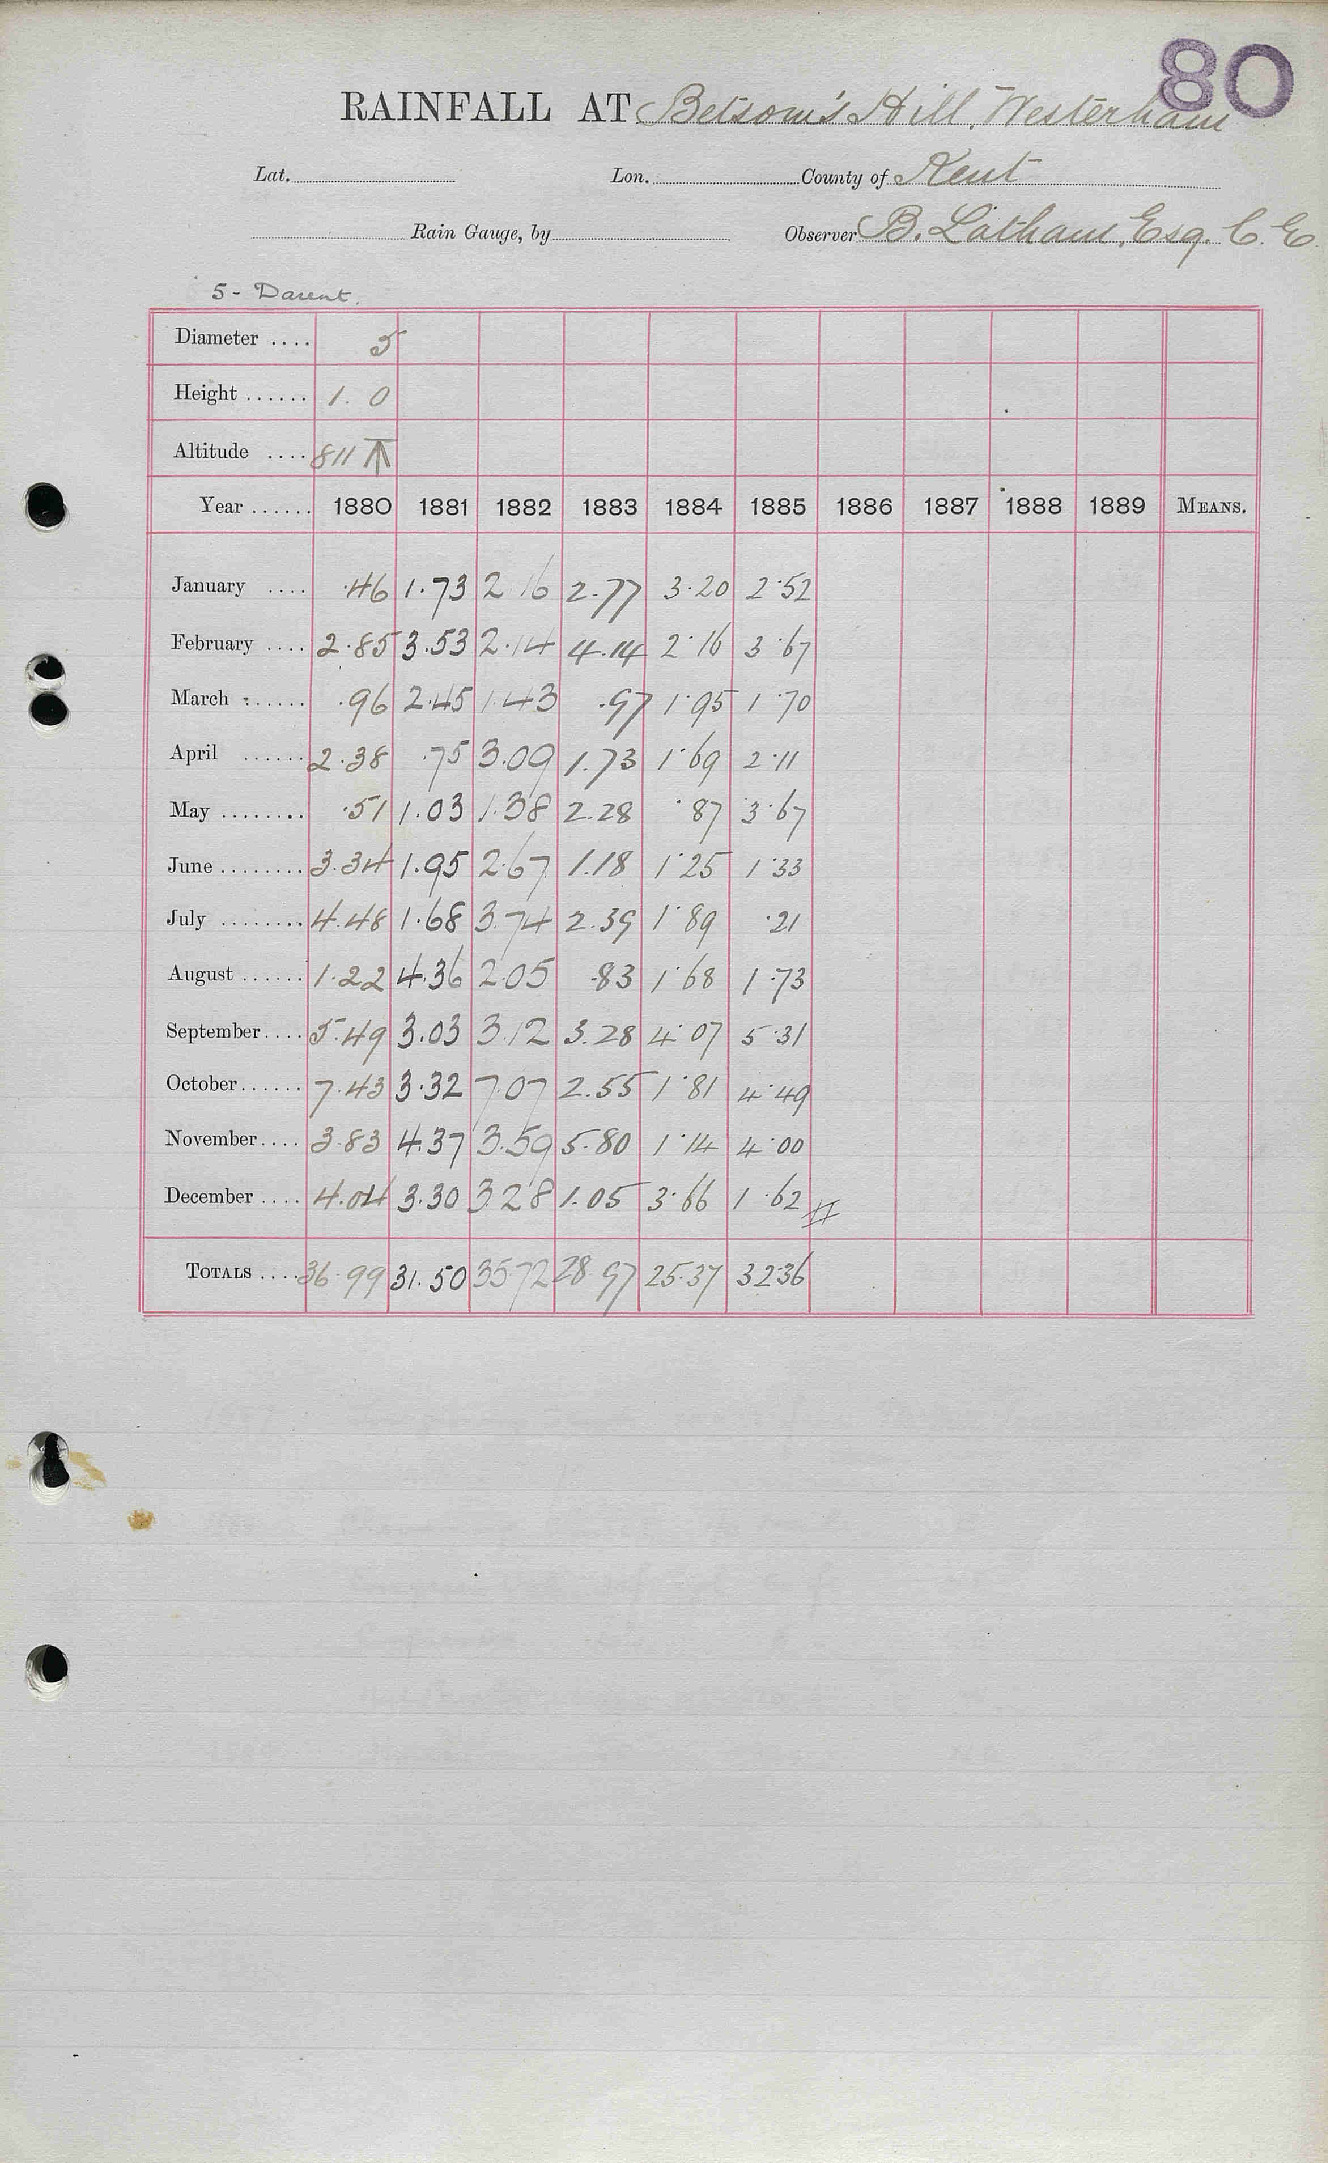 80
RAINFALL AT Betsom's Hill, Westerham
Lat. Lon. County of Kent
Rain Gauge, by Observer B. Latham, Esq. C. E.
5 - Darent.
Diameter .... 5
Height ...... 1. 0
Altitude .... 811
Year ...... 1880 1881 1882 1883 1884 1885 1886 1887 1888 1889 MEANS.
January .... .46 1.73 2 16 2.77 3.20 2.52
February .... 2.85 3.53 2.14 4.14 2.16 3.67
March ...... .96 2.45 1.43 .97 1.95 1.70
April ...... 2.38 .75 3.09 1.73 1.69 2.11
May ........ .51 1.03 1.38 2.28 .87 3.67
June ........ 3.34 1.95 2.67 1.18 1.25 1.33
July ........ 4.48 1.68 3.74 2.39 1.89 .21
August ...... 1.22 4.36 2.05 .83 1.68 1.73
September .... 5.49 3.03 3.12 3.28 4.07 5.31
October ...... 7.43 3.32 7.07 2.55 1.81 4.49
November .... 3.83 4.37 3.59 5.80 1.14 4.00
December .... 4.04 3.30 3.28 1.05 3.66 1.62
TOTALS .... 36.99 31.50 35.72 28.97 25.37 32.36